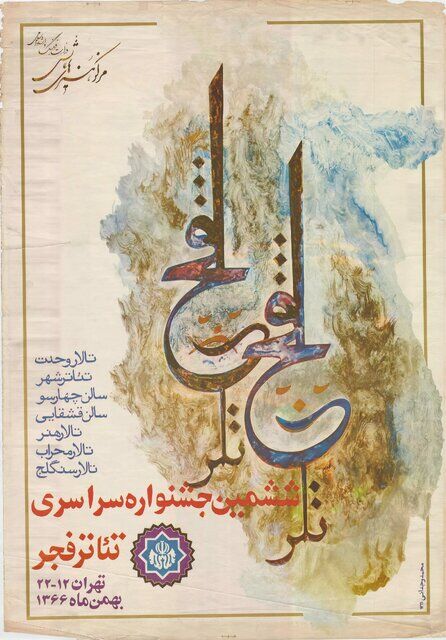 وزارت فرهنگ و ارشاد اسلامی
مرکز هنرهای نمایشی
تئاتر فجر
تئاتر فجر
تالار وحدت
تئاتر شهر
سالن چهارسو
سالن قشقایی
تالار هنر
تالار محراب
تالار سنگلج
ششمین جشنواره سراسری
تئاتر فجر
تهران ۱۲-۲۲
بهمن ماه ۱۳۶۶